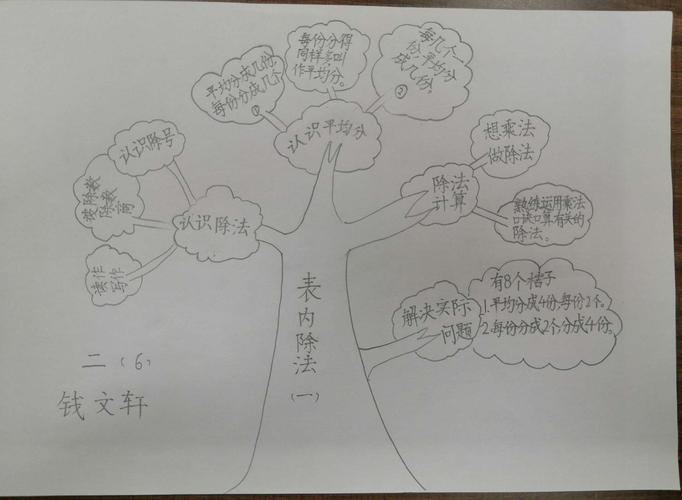 每份分得
同样多叫
作平均分。
平均分成几份,
每份分成几个
①
每几个一
份,平均分
成几份。
②
认识平均分
认识除号
被除数
除数
商
读作
写作
认识除法
想乘法
做除法
除法
计算
熟练运用乘法
口诀口算有关的
除法。
解决实际
问题
有8个桔子
1.平均分成4份,每份2个。
2.每份分成2个,分成4份。
表内除法
(一)
二(6)
钱文轩